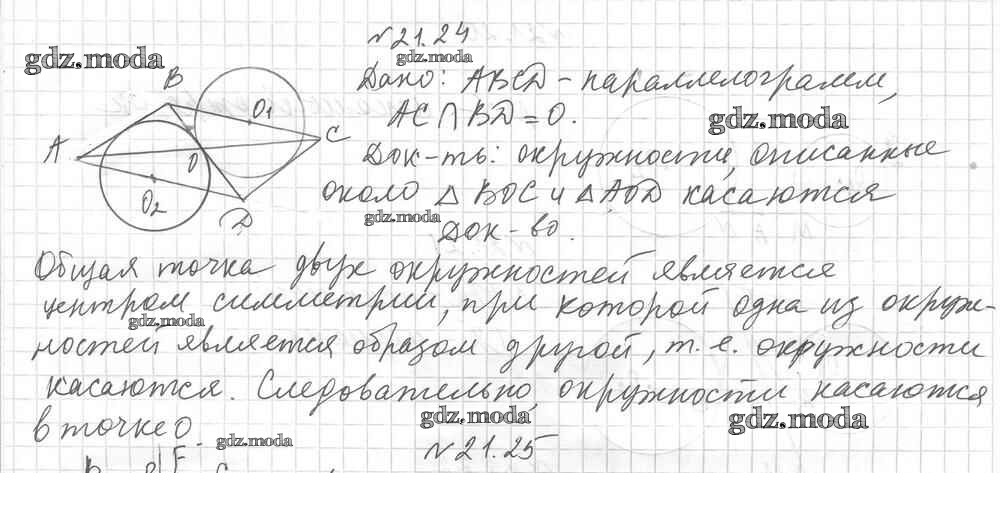 №21.24
gdz.moda
gdz.moda
Дано: ABCD - параллелограмм,
B
O1
AC∩BD = O.
gdz.moda
C
A
O
Док-ть: окружности, описанные
O2
около △ BOC и △ AOD касаются
D
gdz.moda
Док-во.
Общая точка двух окружностей является
центром симметрии, при которой одна из окруж-
gdz.moda
ностей является образом другой, т. е. окружности
касаются. Следовательно окружности касаются
gdz.moda
gdz.moda
в точке O.
gdz.moda
№21.25